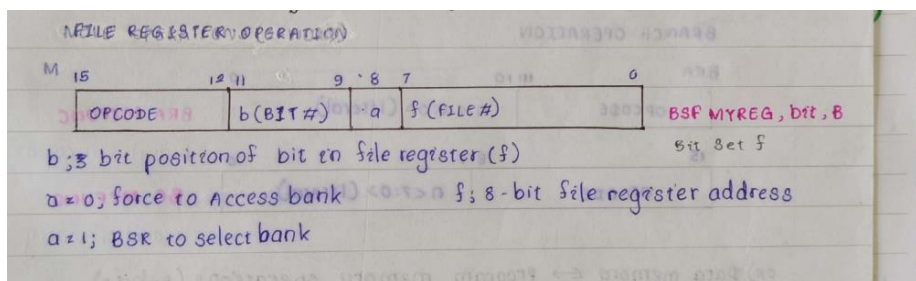 FILE REGISTER OPERATION
15 12 11 9 8 7 0
OPCODE b (BIT #) a f (FILE #) BSF MYREG, bit, B
Bit Set f
b ; 3 bit position of bit in file register (f)
a = 0; force to Access bank f; 8-bit file register address
a = 1; BSR to select bank